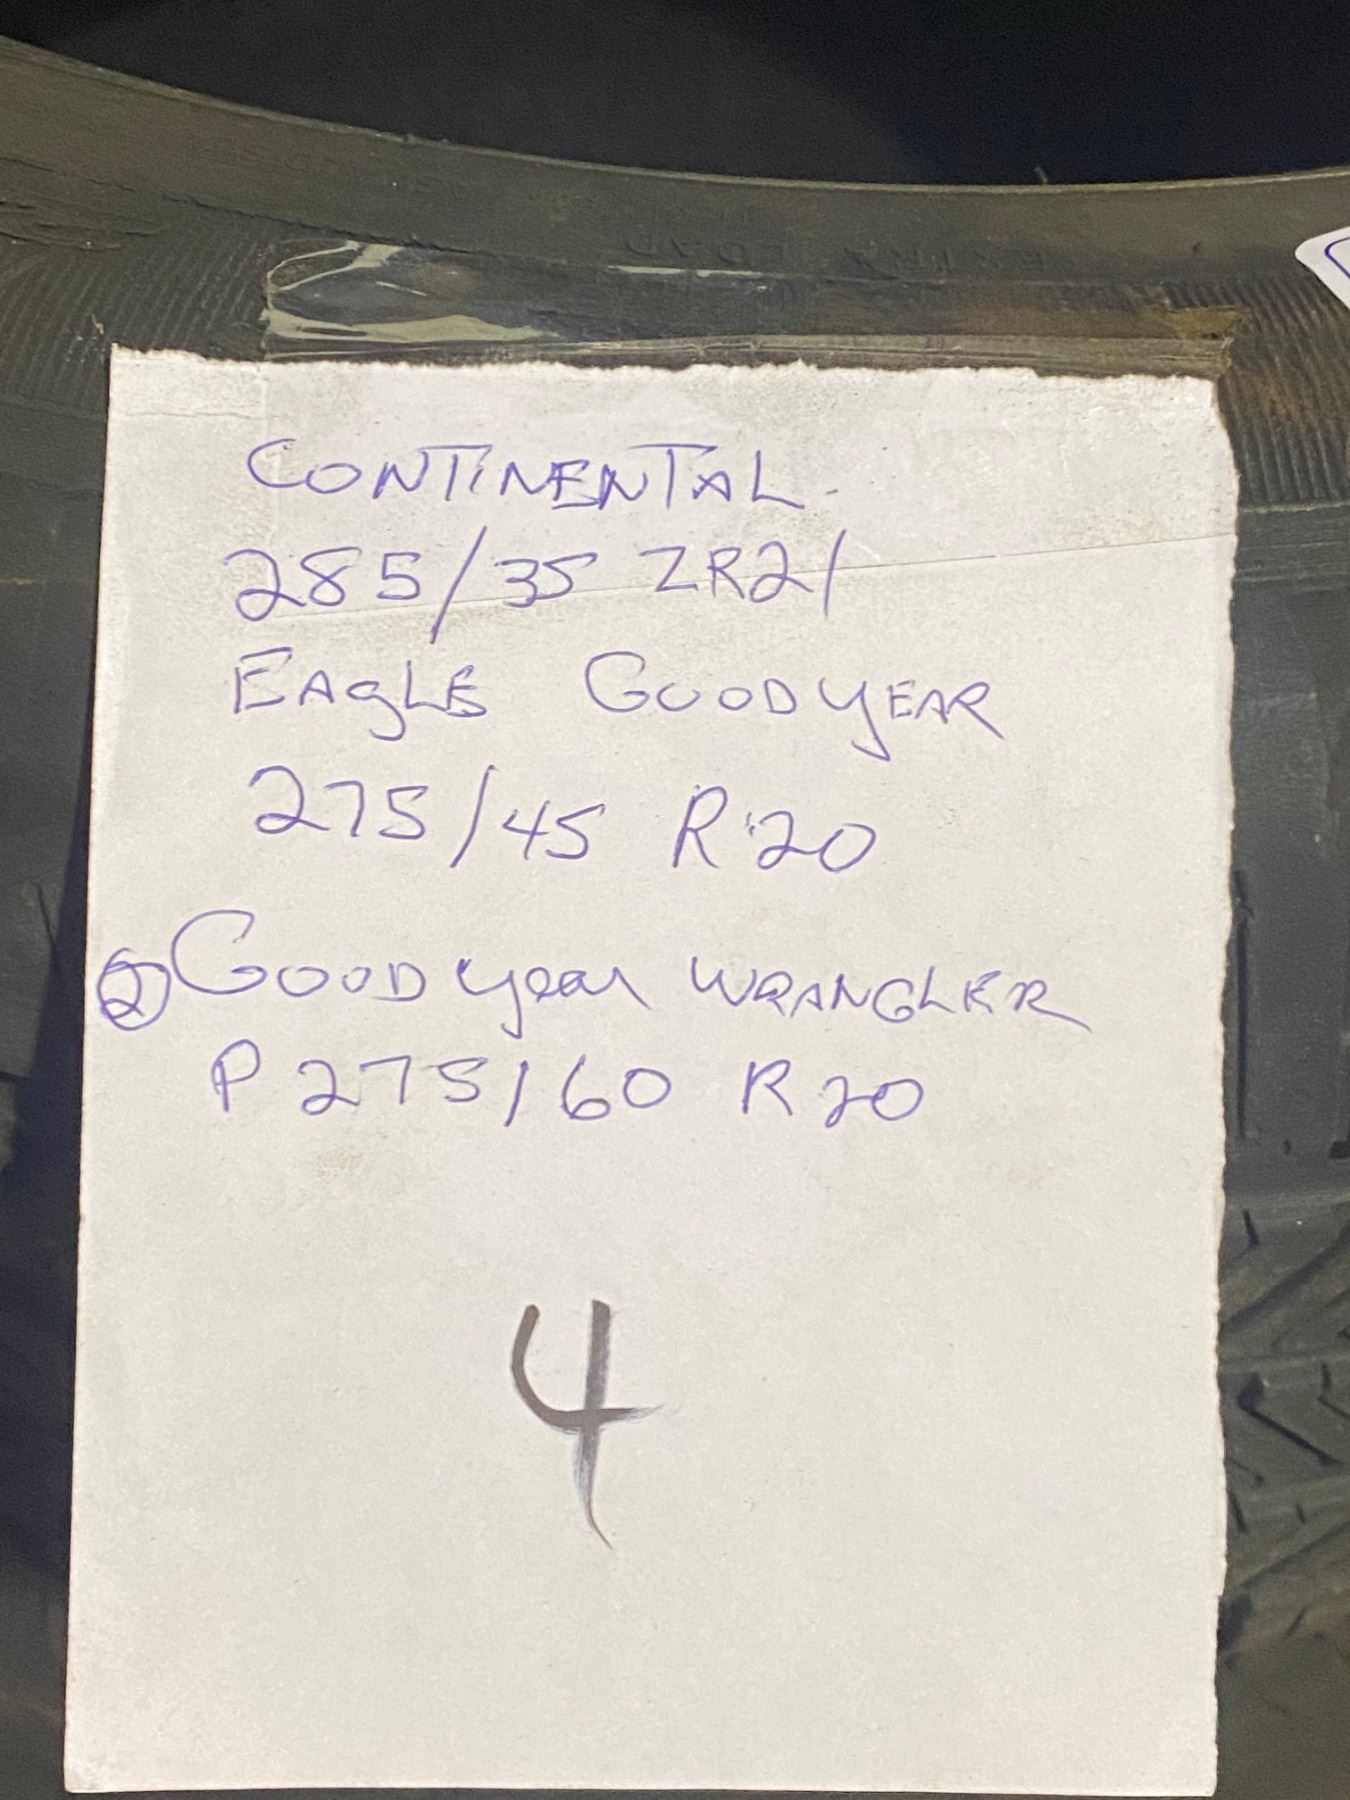 CONTINENTAL.
285/35 ZR21
EAGLE GOODYEAR
275/45 R20
② GOODyear WRANGLER
P275/60 R20
4